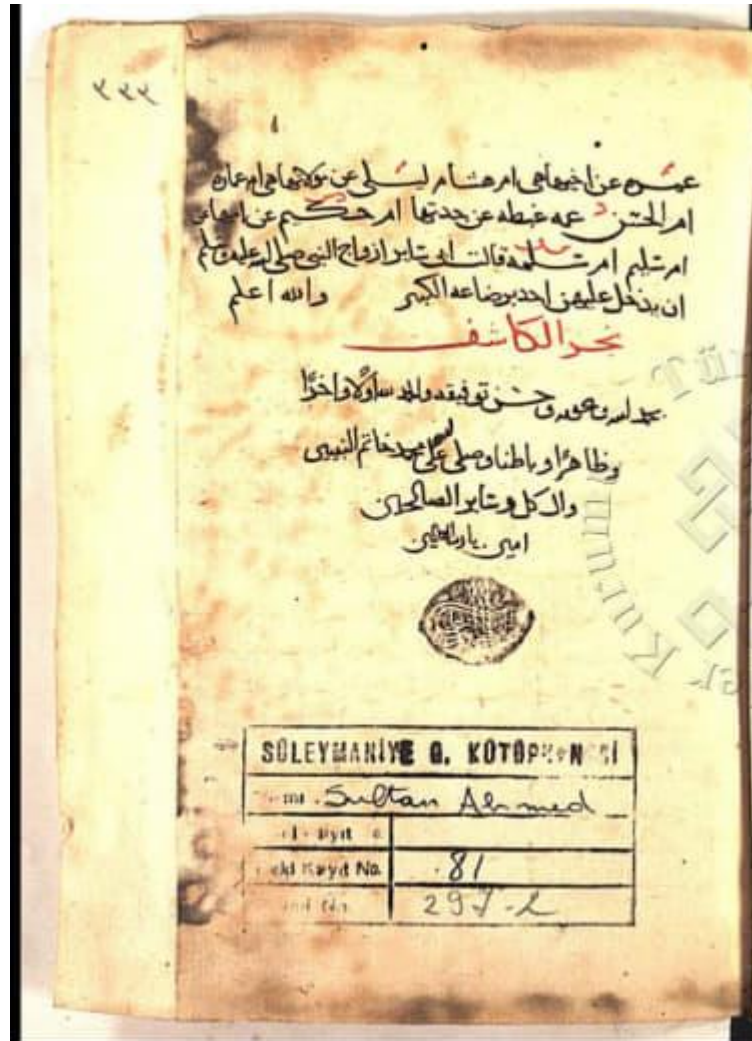 ٣٣٣
عن اختها هي ام هشام ليلى عن مولاتها هي ام عمارة
ام الحسن عمه غبطه عن جدتها ام حكيم عن امها عن
ام سليم ام سلمه قالت ابى سائر ازواج النبي صلى الله عليه وسلم
ان يدخل عليهن احد برضاعه الكبير والله اعلم
نجز الكاشف
بحمد الله وعونه وحسن توفيقه والحمد لله اولا واخرًا
وظاهرًا وباطنا وصلى على محمد خاتم النبيين
وال كل وسائر الصالحين
امين يا رب العالمين
SÜLEYMANİYE G. KÜTÜPHANESİ
Sultan Ahmed
Kayıt No.
81
297-2